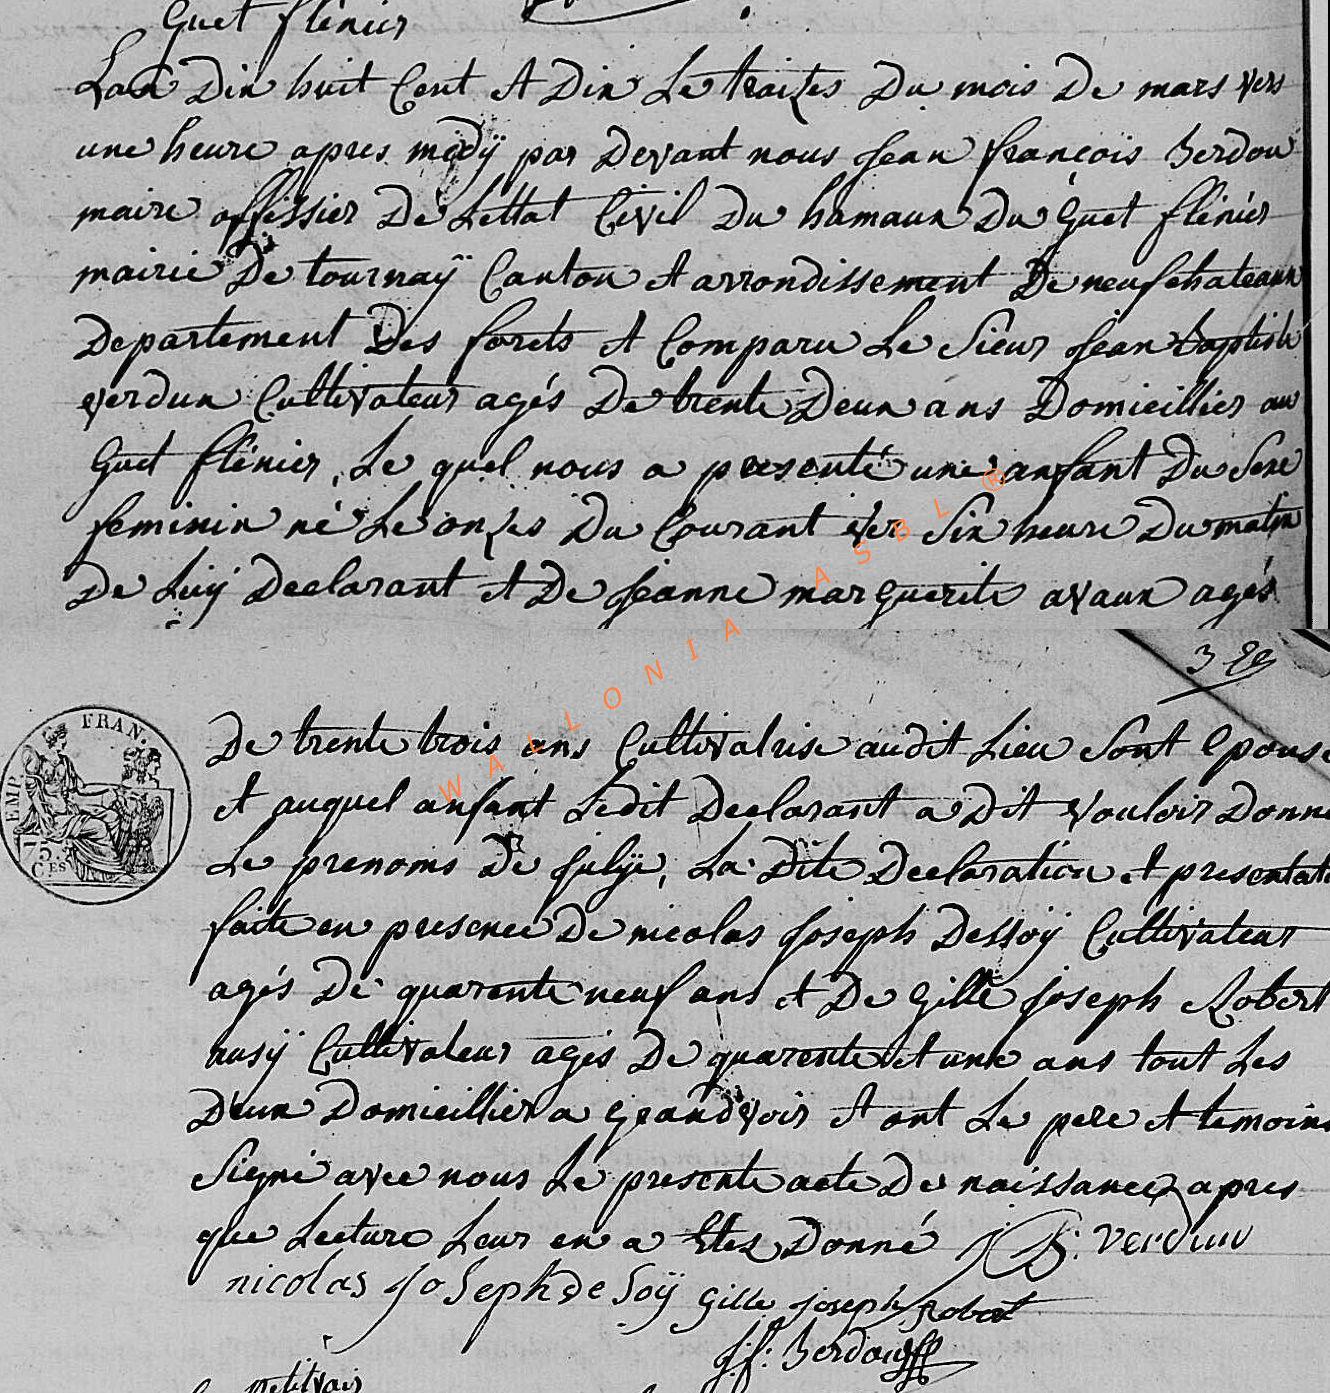 Guet flénier
Lan Dix huit Cent et Dix Le traizes Du mois De mars vers
une heure apres midÿ par Devant nous Jean françois Berdou
maire offissier De Léttat Civil Du hamaux Du Guet flénier
mairie De tournaÿ Canton et arrondissement De neufchateaux
Departement Des forets et Comparu Le Sieur Jean baptiste
verdun Cultivateur agés De trente Deux ans Domicilliér au
Guet flénier, Le quel nous a presenté une anfant Du Sexe
feminin né Le onzes Du Courant ver Six heure Du matin
De Luÿ Declarant et De Jeanne marguerite avaux agés
3 
De trente trois ans Cultivatrise audit Lieu Sont Epouse
et auquel anfant Ledit Declarant a Dit vouloir Donne
Le prenoms De Julÿe, La Dite Declaration et presentati
faite en presence De nicolas Joseph Dessoÿ Cultivateur
agés De quarente neuf ans et De Gille Joseph Robert
nusÿ Cultivateur agés De quarente et unk ans tout Les
Deux Domicillier a grandvoir et ont Le pere et temoins
Signé avec nous Le presente acte De naissance apres
que Lecture Leur en a Etez Donné JB: verdun
nicolas JoSeph de Soÿ Gille joseph Robert
J:f: Berdou
petitvoir
FRAN.
EMP.
75
CES
WALLONIA ASBL ®